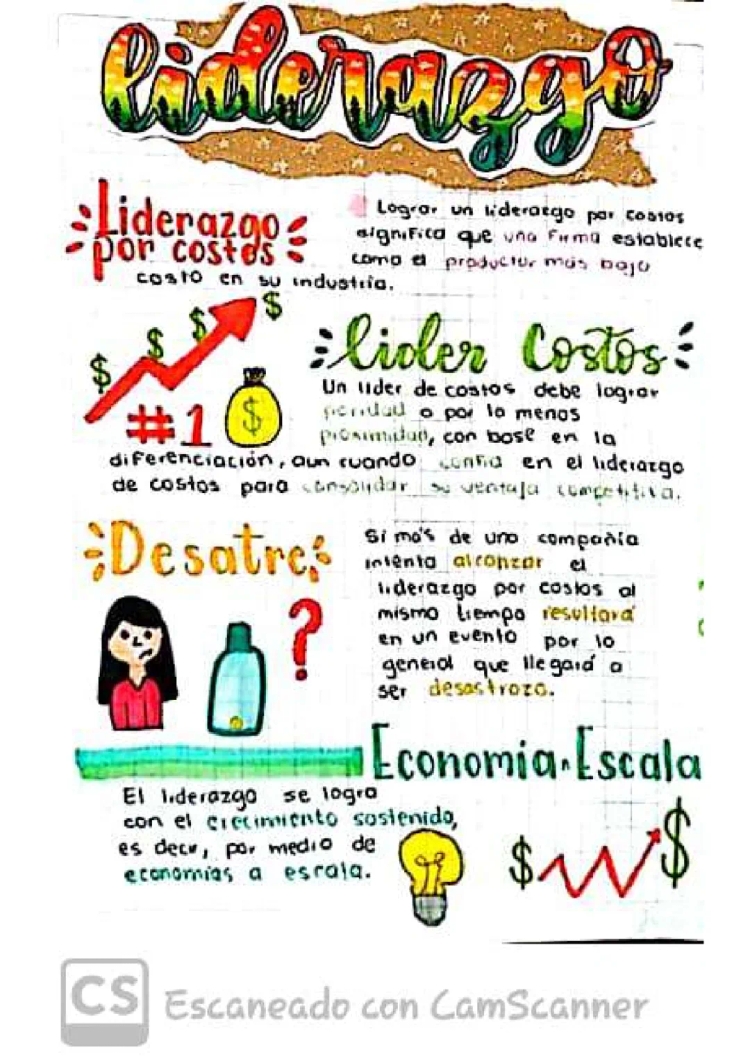 liderazgo
Liderazgo
por costos
Lograr un liderazgo por costos
significa que una firma establece
como el productor más bajo
costo en su industria.
$ $ $ $
#1
$
lider Costos
Un lider de costos debe lograr
paridad o por lo menos
proximidad, con base en la
diferenciación, aun cuando confia en el liderazgo
de costos para consolidar su ventaja competitiva.
Desatre
Si más de una compañia
intenta alcanzar el
liderazgo por costos al
mismo tiempo resultará
en un evento por lo
general que llegará a
ser desastrozo.
?
Economia Escala
El liderazgo se logra
con el crecimiento sostenido,
es decir, por medio de
economías a escala.
$ $
CS Escaneado con CamScanner